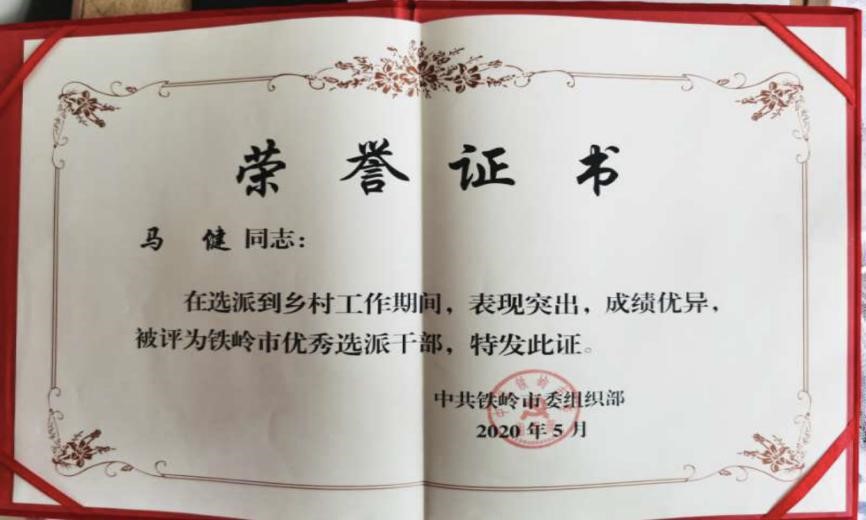 荣誉证书
马 健 同志：
在选派到乡村工作期间，表现突出，成绩优异，
被评为铁岭市优秀选派干部，特发此证。
中共铁岭市委组织部
2020年5月